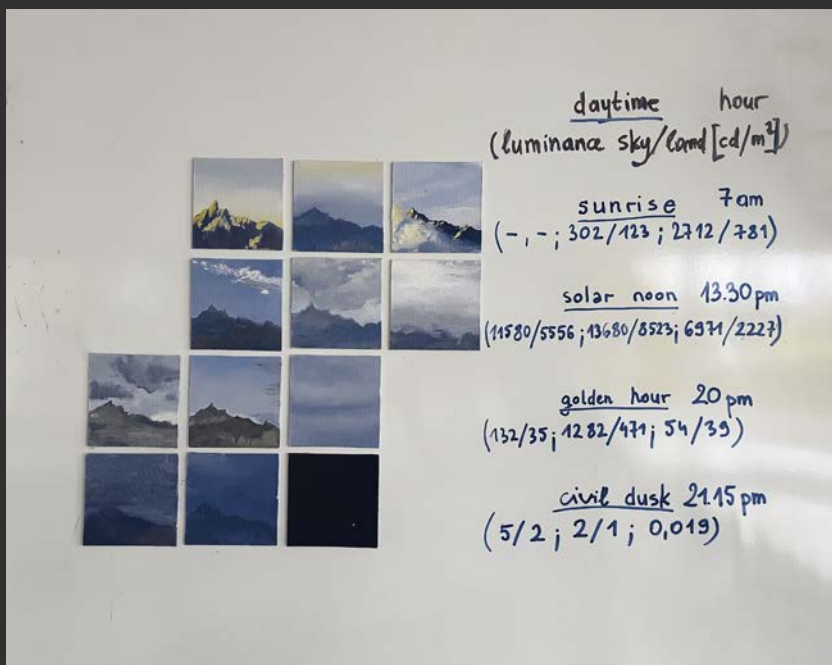 daytime hour
(luminance sky/land [cd/m²])
sunrise 7am
(-,-; 302/123; 2712/781)
solar noon 13.30pm
(11580/5556; 13680/8523; 6971/2227)
golden hour 20pm
(132/35; 1282/471; 54/39)
civil dusk 21.15pm
(5/2; 2/1; 0,019)